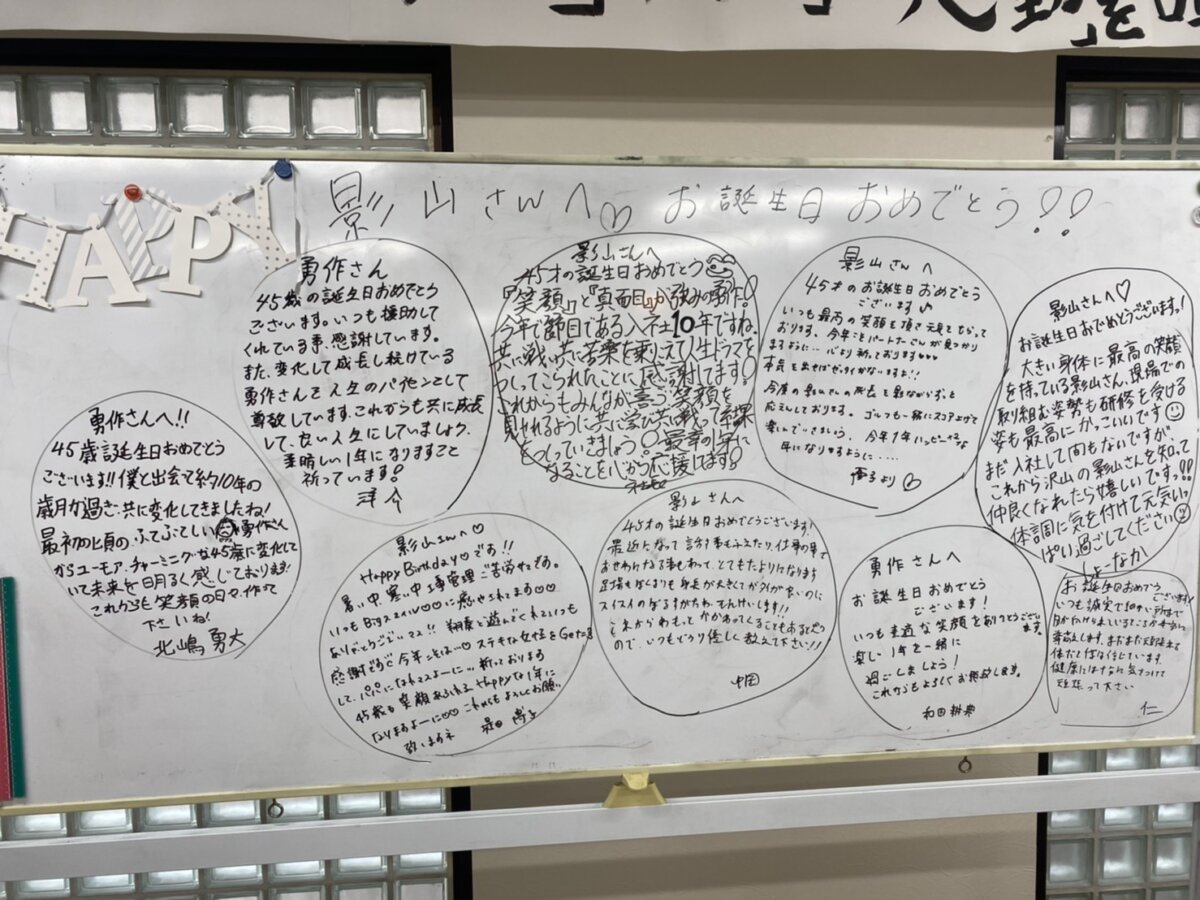 HAPPY
影山さんへ♡ お誕生日おめでとう!!
勇作さん
45歳の誕生日おめでとう
ございます。いつも援助して
くれている事、感謝しています。
また、変化して成長し続けている
勇作さんを人生のパイセンとして
尊敬しています。これからも共に成長
して、良い人生にしていきましょう。
素晴しい1年になりますこと
祈っています!
洋介
影山さんへ
45才の誕生日おめでとう
『笑顔』と『真面目』が強みの勇作!
今年で節目である入社10年ですね。
共に戦い共に苦楽を乗りこえて人生ドラマを
つくってこられたことに感謝してます!
これからもみんなが喜ぶ笑顔を
見せれるように共に学び共に戦って結果
をつくっていきましょう!最幸の1年に
なることを心から応援してます!
影山さんへ
45才のお誕生日おめでとう
ございます♪
いつも最高の笑顔を頂き元気をもらって
おります。今年こそパートナーさんが見つかり
ますように…心より祈っております♥♥♥
本気を出せば
応えんしております。ゴルフも一緒にスコア上げて
楽しんでいきましょう。今年1年ハッピーな
年になりますように……
より♡
影山さんへ♡
お誕生日おめでとうございます!
大きい身体に最高の笑顔
を持っている影山さん、現場での
取り組む姿勢も研修を受ける
姿も最高にかっこいいです☺
まだ入社して間もないですが
これから沢山の影山さんを知って
仲良くなれたら嬉しいです!!
体調に気を付けて元気いっ
ぱい過ごしてください☺
しょーなか
勇作さんへ!!
45歳誕生日おめでとう
ございます!!僕と出会って約10年の
歳月が過ぎ、共に変化してきましたね!
最初の頃の、ふてぶてしい勇作さん
からユーモア、チャーミングな45歳に変化して
いて未来を明るく感じております!
これからも笑顔の日々作って
下さいね!
北嶋 勇大
影山さんへ♡
Happy Birthday♡です!!
暑い中、寒い中工事管理ご苦労さまです。
いつもBigスマイル♡♡に癒やされてます♡♡
ありがとうございます!! 翔康と遊んでくれていつも
感謝です♡ 今年こそは…♡ ステキな女性をGetだぜ
して、パパになれますよーに…祈っております
45歳も笑顔あふれるHappyな1年に
なりますよーに♡♡ これからもよろしくお願い
致しますネ
影山さんへ
45才の誕生日おめでとうございます!
最近になって話す事もふえたり、仕事の事で
おせわになる事もあって、とてもたよりになります
足場もぼくよりも身長が大きくてガタイが良いのに
スイスイのぼるすがたわ、てんけいします!!
これからわもっとかかわってくることもあると思う
ので、いつもどうり優しく教えて下さい!!
中田
勇作さんへ
お誕生日おめでとう
ございます!
いつも素適な笑顔をありがとうござい
ます。
楽しい1年を一緒に
過ごしましょう!
これからもよろしくお願致します。
和田 耕典
お誕生日おめでとう
ございます!
いつも誠実で
健康には
仁